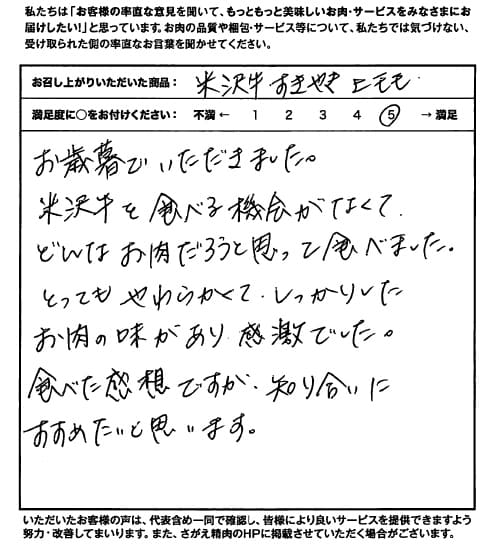 私たちは「お客様の率直な意見を聞いて、もっともっと美味しいお肉・サービスをみなさまにお
届けしたい！」と思っています。お肉の品質や梱包・サービス等について、私たちでは気づけない、
受け取られた側の率直なお言葉を聞かせてください。
お召し上がりいただいた商品： 米沢牛 すきやき 上モモ
満足度に○をお付けください： 不満 ← 1 2 3 4 ⑤ → 満足
お歳暮でいただきました。
米沢牛を食べる機会がなくて、
どんなお肉だろうと思って食べました。
とってもやわらかくて、しっかりした
お肉の味があり感激でした。
食べた感想ですが、知り合いに
すすめたいと思います。
いただいたお客様の声は、代表含め一同で確認し、皆様により良いサービスを提供できますよう
努力・改善してまいります。また、さがえ精肉のHPに掲載させていただく場合がございます。